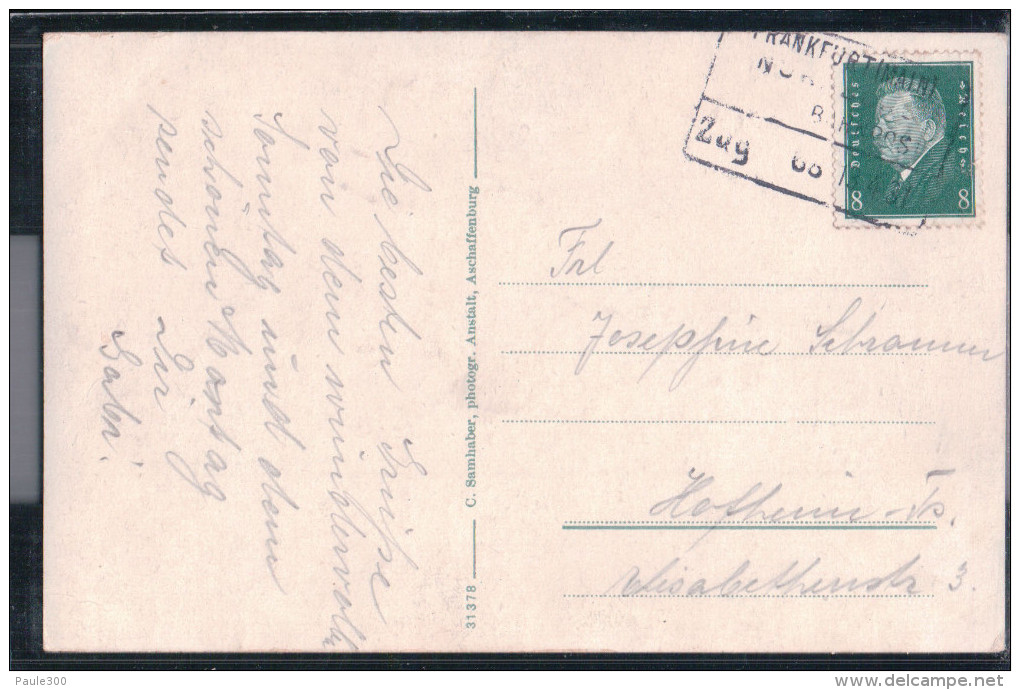 Die besten Grüße
von dem wundervollen
Sonntag und dem
schönen Montag
sendet Dir
Gabi.
31378 C. Samhaber, photogr. Anstalt, Aschaffenburg
FRANKFURT (MAIN)
Zug
Deutsches Reich
8 8
Frl
Josephine Schrammer
Hofheim-Ts.
Elisabethenstr 3.
Paule300
www.delcampe.net